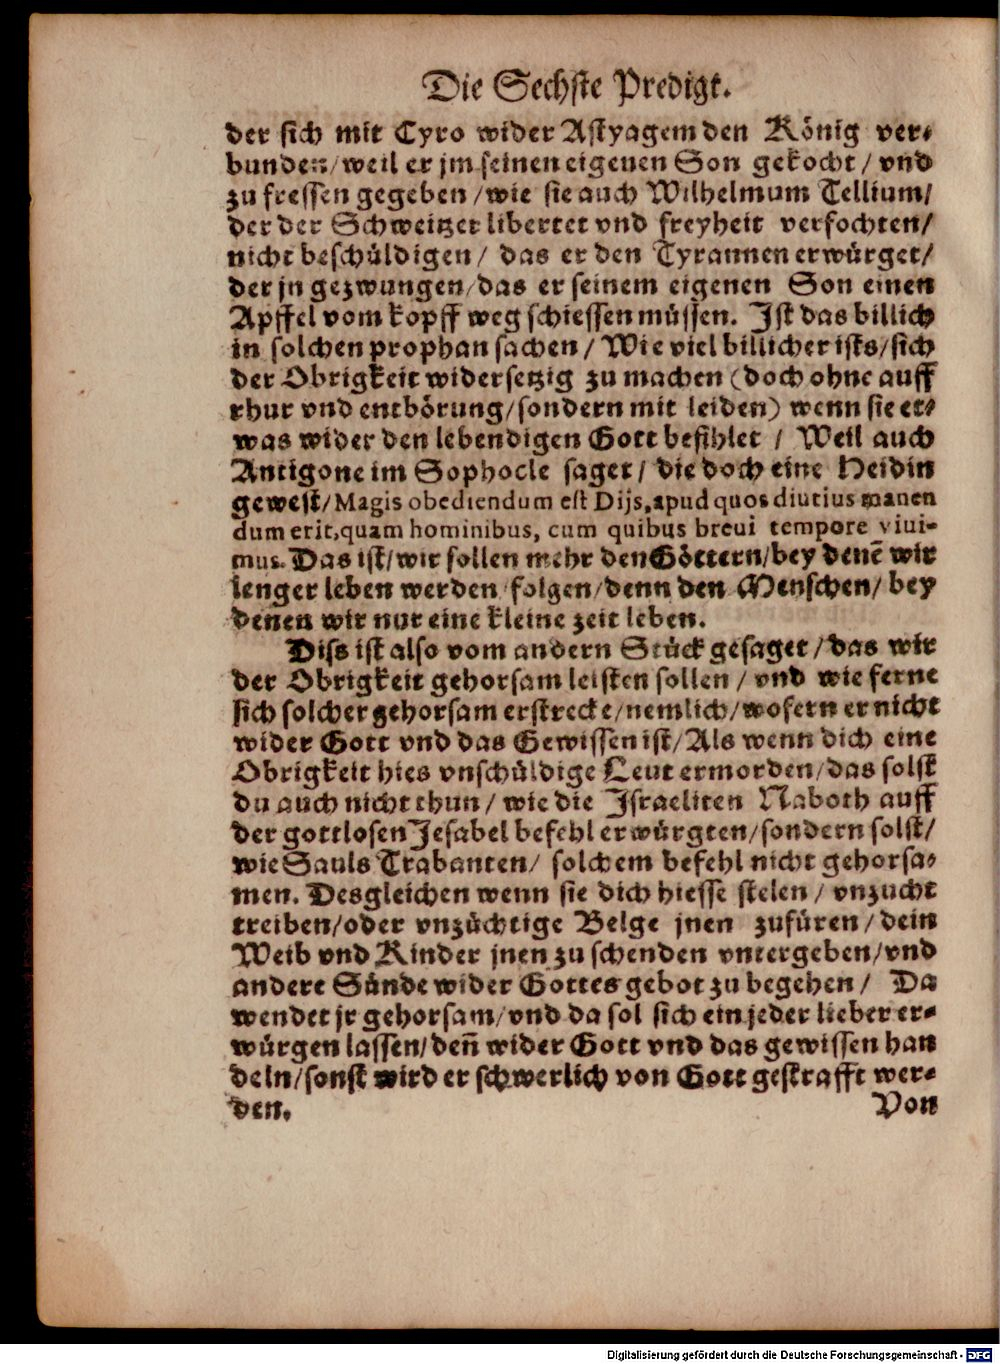 Die Sechste Predigt.
der sich mit Cyro wider Astyagem den König ver-
bunden/weil er jm seinen eigenen Son gekocht/ vnd
zu fressen gegeben/wie sie auch Wilhelmum Tellium/
der der Schweitzer libertet vnd freyheit verfochten/
nicht beschüldigen/ das er den Tyrannen erwürget/
der jn gezwungen/das er seinem eigenen Son einen
Apffel vom kopff weg schiessen müssen. Ist das billich
in solchen prophan sachen/ Wie viel billicher ists/sich
der Obrigkeit widersetzig zu machen (doch ohne auff
rhur vnd entbörung/sondern mit leiden) wenn sie et-
was wider den lebendigen Gott befihlet/ Weil auch
Antigone im Sophocle saget/ die doch eine Heidin
gewest/Magis obediendum est Dijs, apud quos diutius manen
dum erit, quam hominibus, cum quibus breui tempore viui-
mus. Das ist/wir sollen mehr den Göttern/bey denē wir
lenger leben werden/folgen/denn den Menschen/ bey
denen wir nur eine kleine zeit leben.
Diss ist also vom andern Stück gesaget/das wir
der Obrigkeit gehorsam leisten sollen/ vnd wie ferne
sich solcher gehorsam erstrecke/nemlich/wofern er nicht
wider Gott vnd das Gewissen ist/Als wenn dich eine
Obrigkeit hies vnschüldige Leut ermorden/das solst
du auch nicht thun/ wie die Israeliten Naboth auff
der gottlosen Jesabel befehl erwürgten/sondern solst/
wie Sauls Trabanten/ solchem befehl nicht gehorsa-
men. Desgleichen wenn sie dich hiesse stelen/ vnzucht
treiben/oder vnzüchtige Belge jnen zufüren/dein
Weib vnd Kinder jnen zu schenden vntergeben/vnd
andere Sünde wider Gottes gebot zu begehen/ Da
wendet jr gehorsam/vnd da sol sich ein jeder lieber er-
würgen lassen/deñ wider Gott vnd das gewissen han
deln/sonst wird er schwerlich von Gott gestrafft wer-
den.
Von
Digitalisierung gefördert durch die Deutsche Forschungsgemeinschaft - DFG